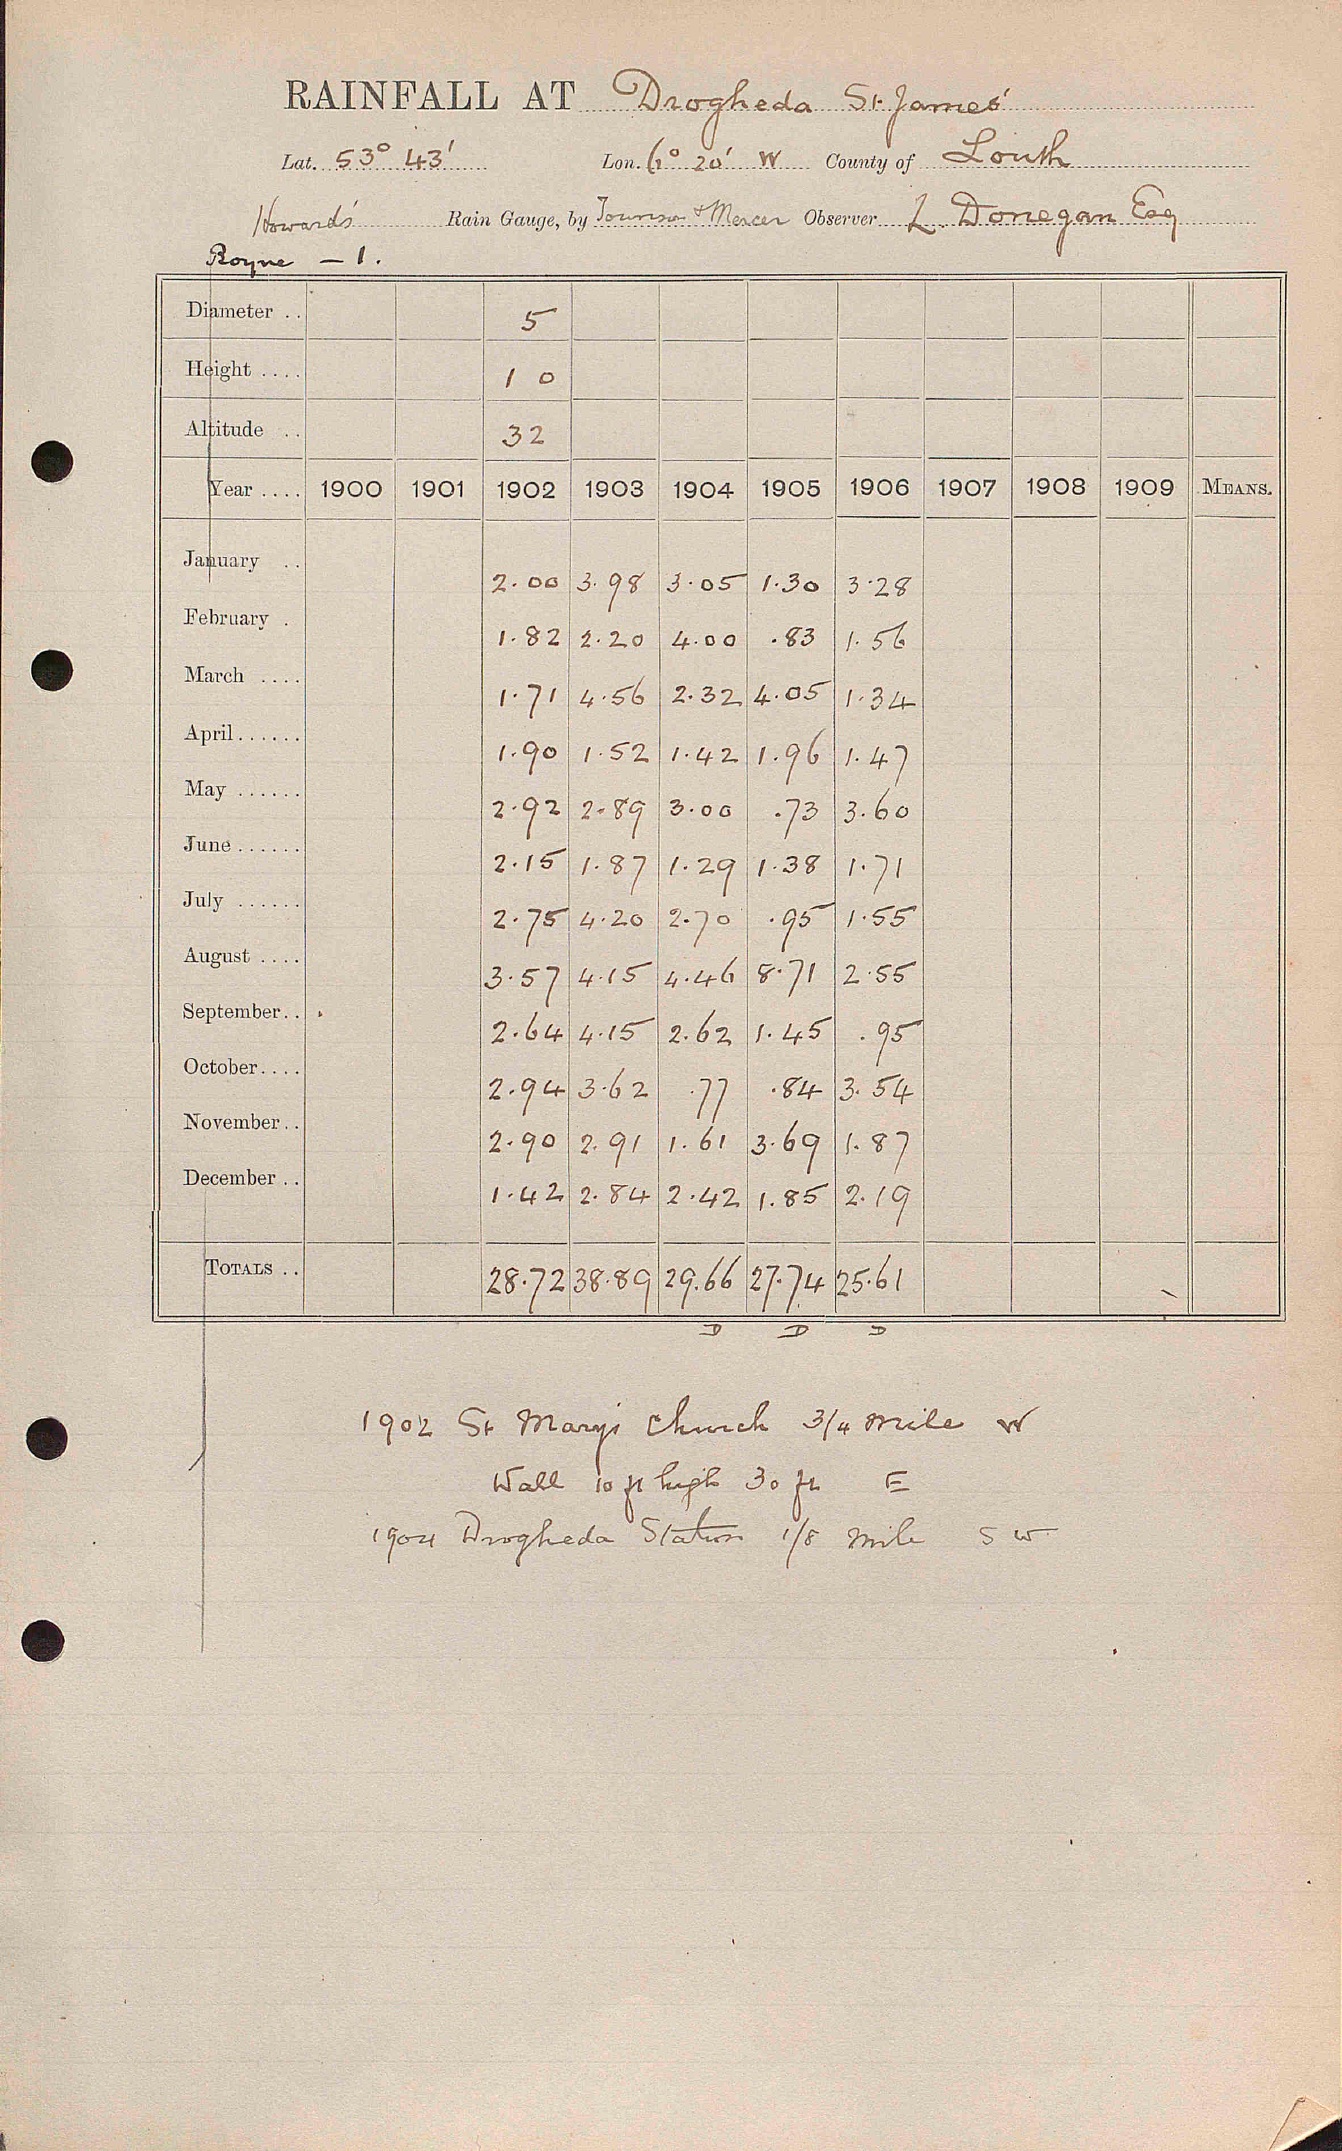 RAINFALL AT Drogheda St. James'
Lat. 53° 43' Lon. 6° 20' W County of Louth
Howard's Rain Gauge, by Townson & Mercer Observer L. Donegan Esq
Boyne — 1.
Diameter .. 5
Height .... 1 0
Altitude .. 32
Year .... 1900 1901 1902 1903 1904 1905 1906 1907 1908 1909 MEANS.
January .. 2.00 3.98 3.05 1.30 3.28
February . 1.82 2.20 4.00 .83 1.56
March .... 1.71 4.56 2.32 4.05 1.34
April...... 1.90 1.52 1.42 1.96 1.47
May ...... 2.92 2.89 3.00 .73 3.60
June...... 2.15 1.87 1.29 1.38 1.71
July ...... 2.75 4.20 2.70 .95 1.55
August .... 3.57 4.15 4.46 8.71 2.55
September.. 2.64 4.15 2.62 1.45 .95
October.... 2.94 3.62 .77 .84 3.54
November.. 2.90 2.91 1.61 3.69 1.87
December .. 1.42 2.84 2.42 1.85 2.19
TOTALS .. 28.72 38.89 29.66 27.74 25.61
D D D
1902 St Mary's Church 3/4 mile W
Wall 10 ft high 30 ft E
1904 Drogheda Station 1/8 mile S W